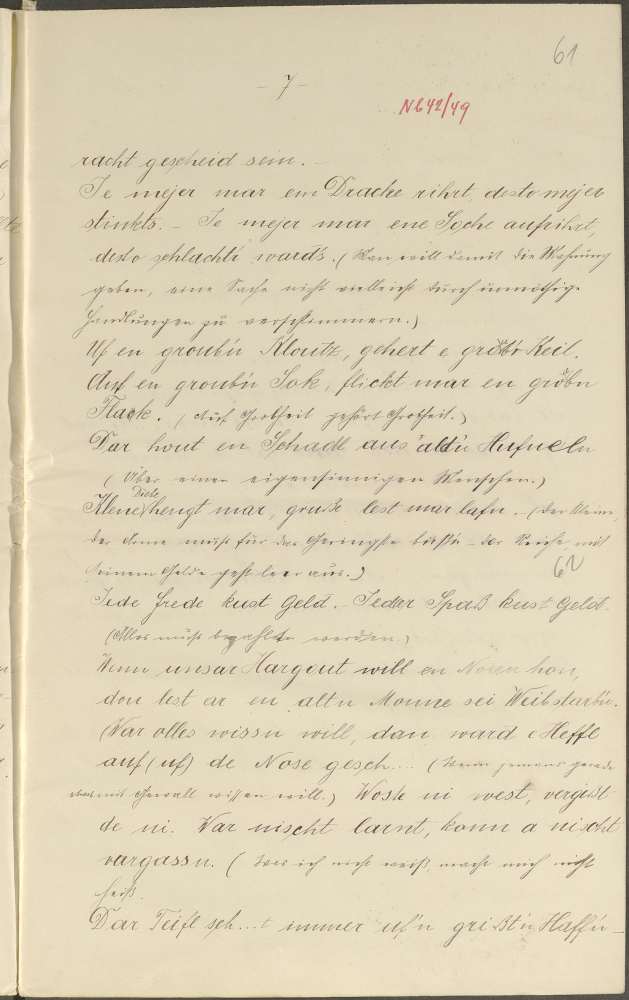 61
- 7 -
N642/49
racht gescheid sein. -
Je mejer mar em Dracke rihrt, desto mejer
stinkts. - Je mejer mar ene Soche aufrihrt,
desto schlachti ward's. (Man will damit die Mahnung
geben, eine Sache nicht vielleicht durch unnöthige
Handlungen zu verschlimmern.)
Uf en groub'n Kloutz, gehert e grober Keil.
Auf en groub'n Sok, flickt mar en gröbn
Flack. (Auf Grobheit gehört Grobheit.)
Dar hout en Schadl aus altn Hufneln
(Über einen eigensinnigen Menschen.)
Klene Diebe hengt mar, gruße lest mar lafn. (Der Kleine,
der Arme muß für das Geringste büß'n - der Reiche mit
seinem Gelde geht leer aus.)
62
Jede frede kust Geld. - Jeder Spaß kust Geld.
(Alles muß bezahlt werden.)
Wenn unsar Hargout will en Norrn hon,
dou lest ar en altn Monne sei Weib starbn.
(War olles wissn will, dan ward e Heffl
auf (uf) de Nose gesch... (Wenn jemand gerade
etwas mit Gewalt wissen will.) Woste ni west, vergißt
de ni. War nischt larnt, konn a nischt
vargassn. (Was ich nicht weiß, macht mich nicht
heiß.
Dar Teifl sch...t immer uf'n grißt'n Haff'n -